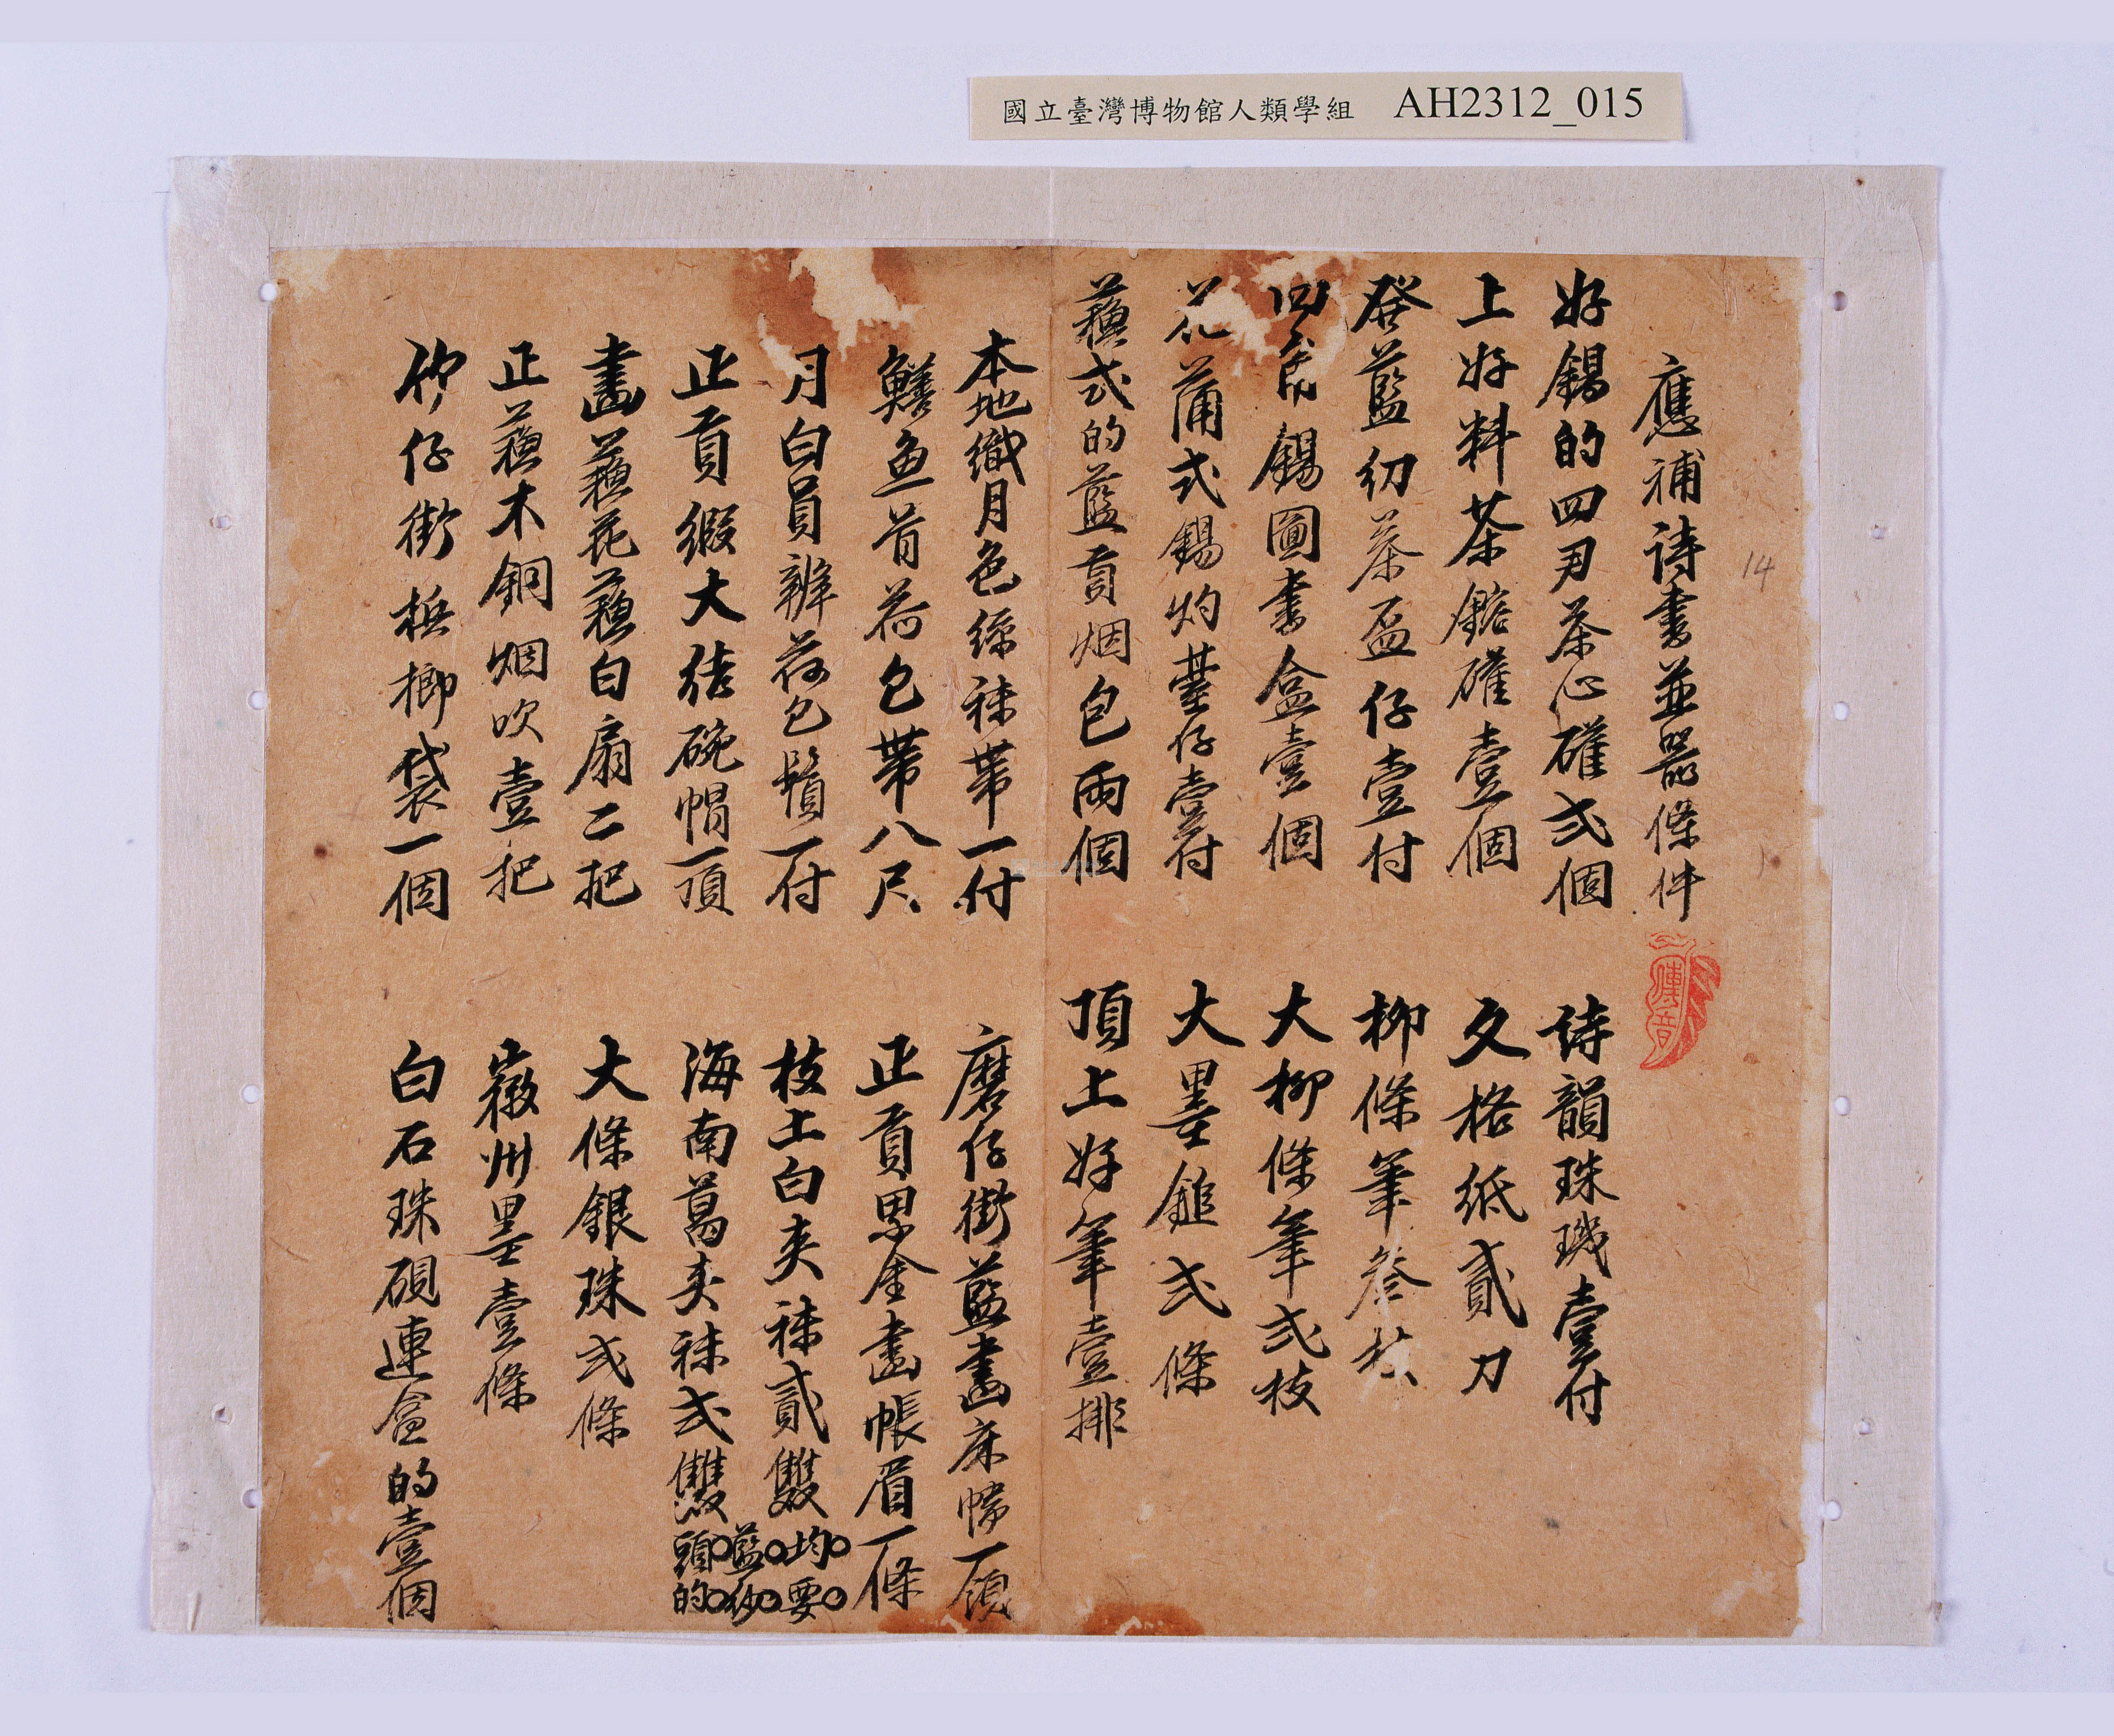 國立臺灣博物館人類學組 AH2312_015
14
應補詩書並器條件
傳音
好錫的四方茶心礶弍個
上好料茶鍋礶壹個
發藍幼茶盃仔壹付
四方錫圖書盒壹個
花蒲式錫灼臺仔壹付
蘓式的藍貢烟包兩個
詩韻珠璣壹付
文格紙貳刀
柳條筆叁枝
大柳條筆弍枝
大墨鎚弍條
頂上好筆壹排
本地織月色綜袜帶一付
鱔魚首荷包帶八尺
月白員辦荷包鬚一付
正貢緞大结碗帽一頂
畫蘓花蘓白扇二把
正蘓木銅烟吹壹把
竹仔街梹榔袋一個
磨仔街藍畫床幃一領
正貢累金畫帳眉一條
枝土白夾袜貳雙
海南葛夾袜弍雙
均要藍紗頭的
大條銀珠弍條
徽州墨壹條
白石珠硯連盒的壹個